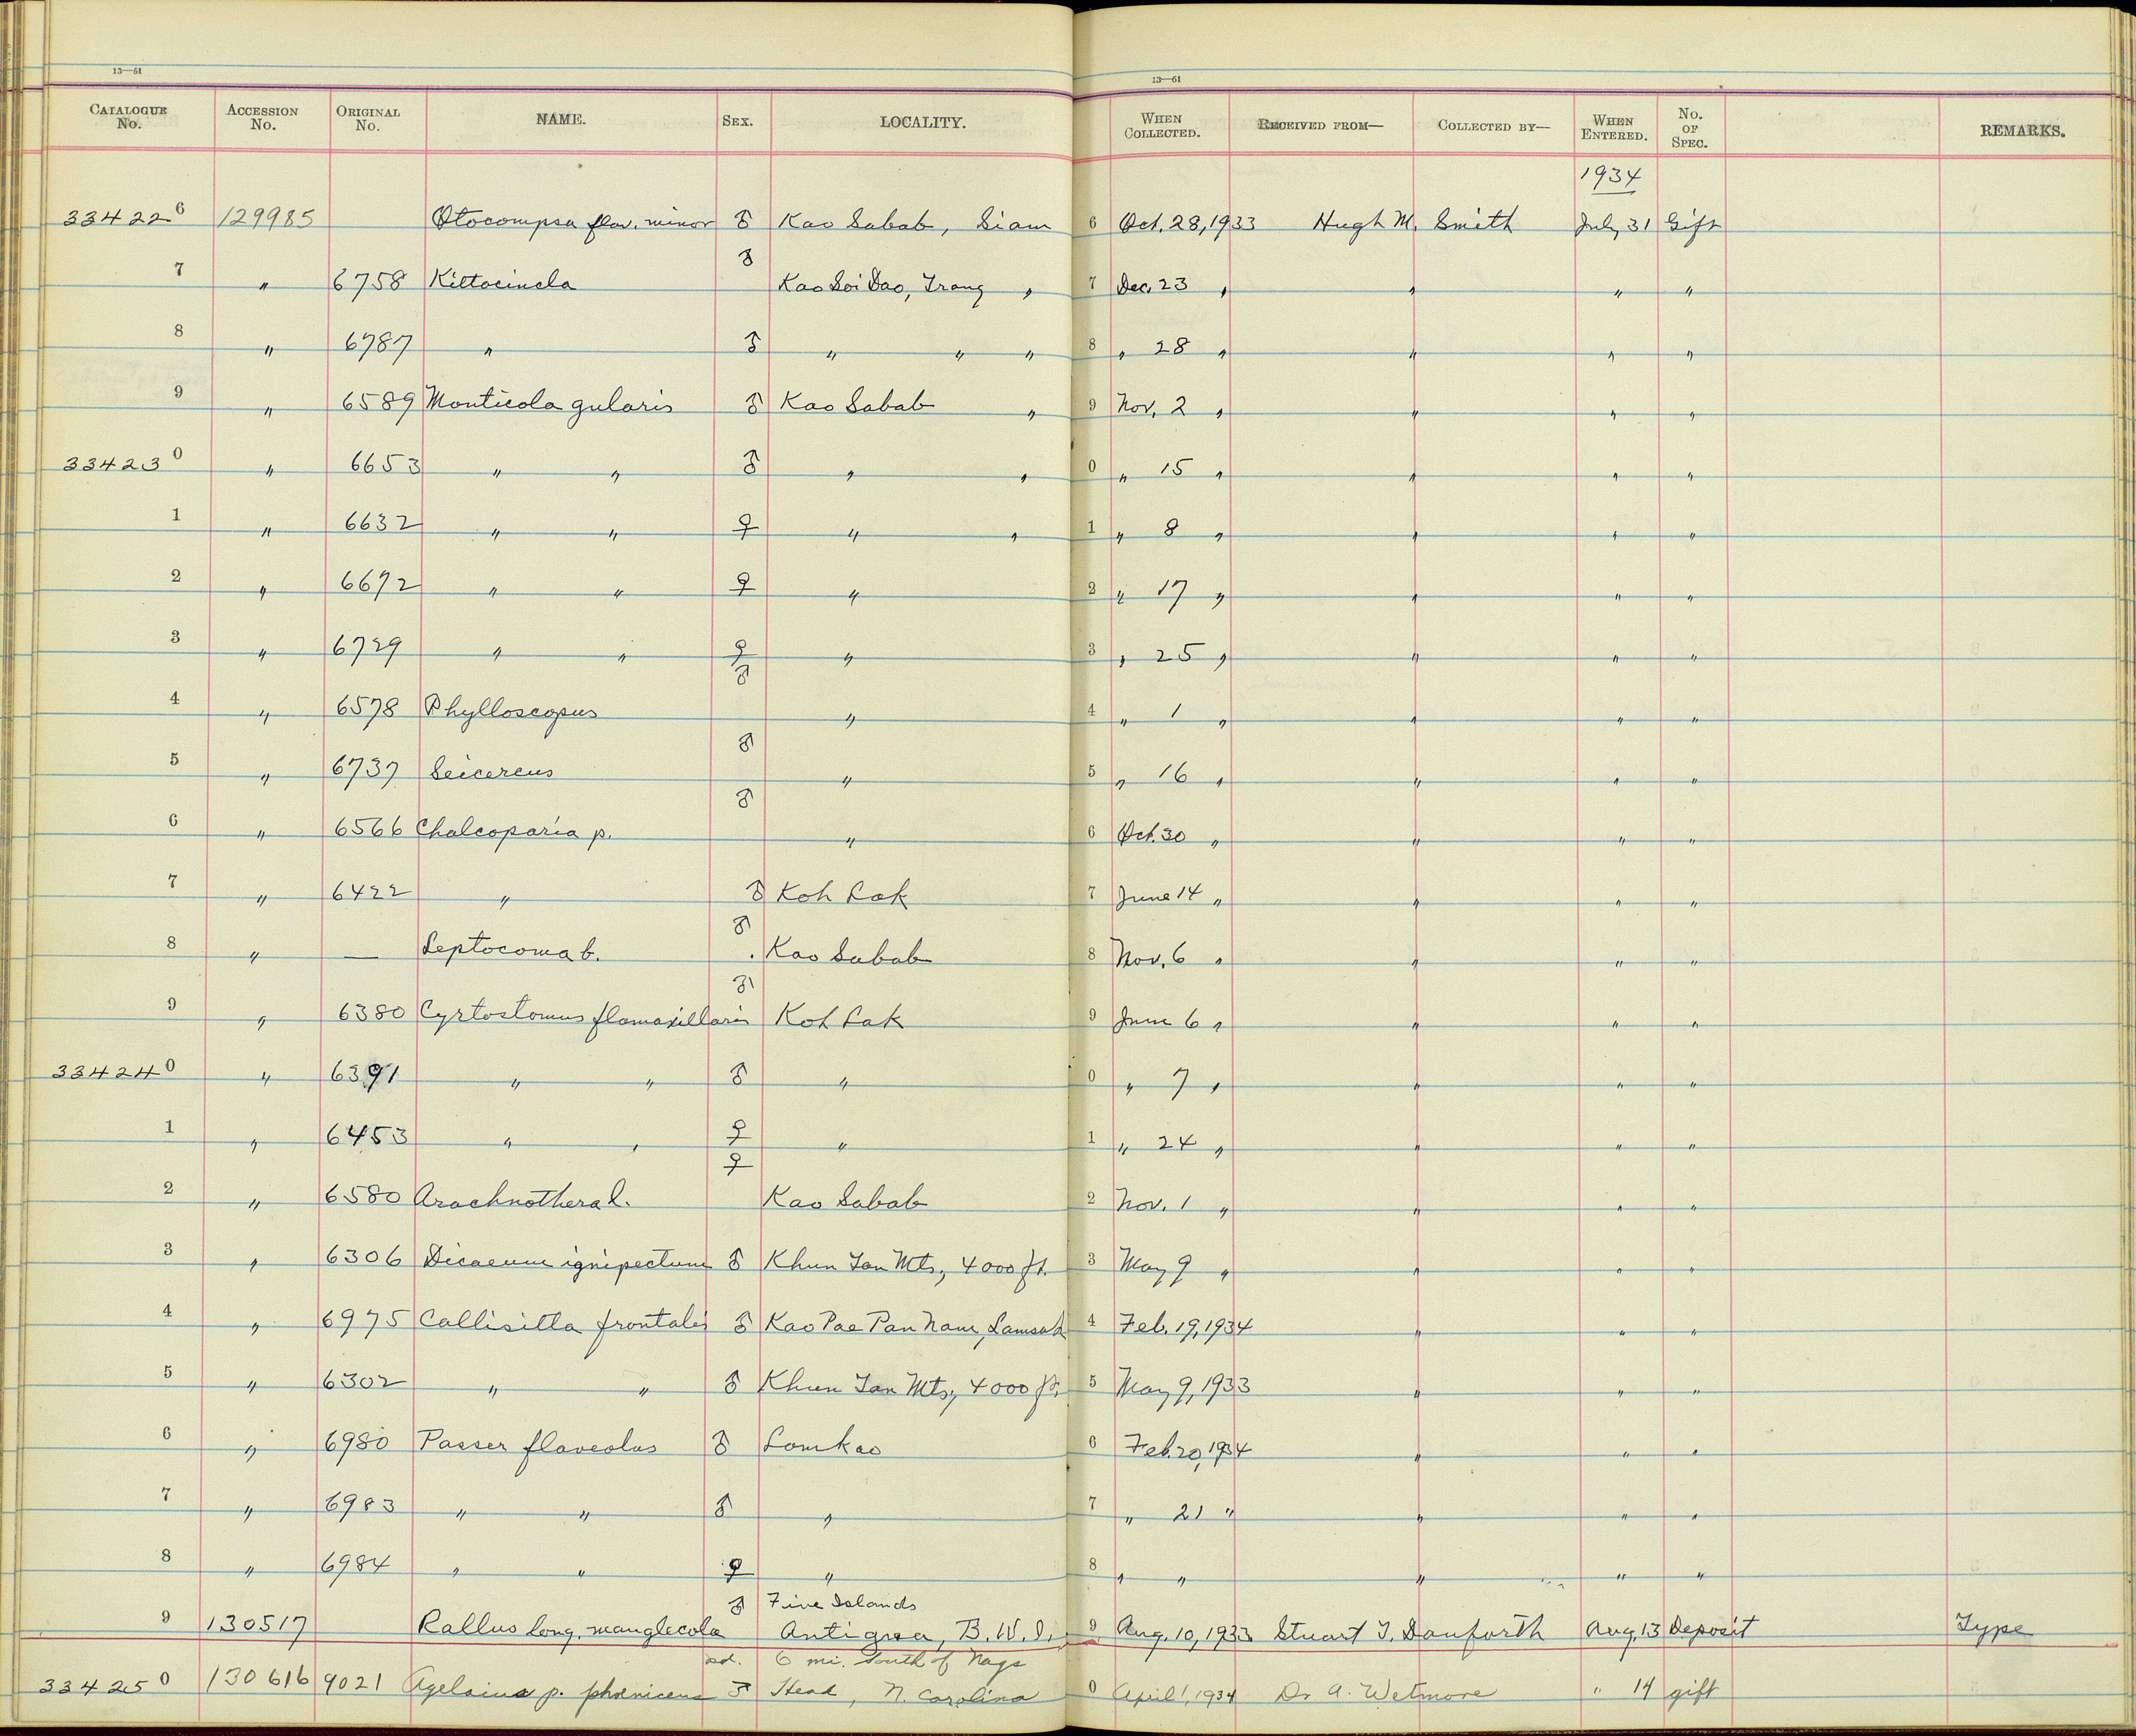 13—61 13—61
CATALOGUE No. ACCESSION No. ORIGINAL No. NAME. SEX. LOCALITY. WHEN COLLECTED. RECEIVED FROM— COLLECTED BY— WHEN ENTERED. No. OF SPEC. REMARKS.
1934
33422 6 129985 Otocompsa flav. minor ♂ Kao Sabab, Siam 6 Oct. 28, 1933 Hugh M. Smith July 31 Gift
7 " 6758 Kittacincla ♂ Kao Soi Dao, Trang " 7 Dec. 23 " " " "
8 " 6787 " ♂ " " " 8 " 28 " " " "
9 " 6589 Monticola gularis ♂ Kao Sabab " 9 Nov. 2 " " " "
33423 0 " 6653 " " ♂ " " 0 " 15 " " " "
1 " 6632 " " ♀ " " 1 " 8 " " " "
2 " 6672 " " ♀ " 2 " 17 " " " "
3 " 6729 " " ♀ " 3 " 25 " " " "
4 " 6578 Phylloscopus ♂ " 4 " 1 " " " "
5 " 6737 Seicercus ♂ " 5 " 16 " " " "
6 " 6566 Chalcoparia p. ♂ " 6 Oct. 30 " " " "
7 " 6422 " ♂ Koh Lak 7 June 14 " " " "
8 " — Leptocoma b. ♂ Kao Sabab 8 Nov. 6 " " " "
9 " 6380 Cyrtostomus flamaxillaris ♂ Koh Lak 9 June 6 " " " "
33424 0 " 6391 " " ♂ " 0 " 7 " " " "
1 " 6453 " " ♀ " 1 " 24 " " " "
2 " 6580 Arachnothera l. ♀ Kao Sabab 2 Nov. 1 " " " "
3 " 6306 Dicaeum ignipectum ♂ Khun Tan Mts., 4000 ft. 3 May 9 " " " "
4 " 6975 Callisitta frontalis ♂ Kao Pae Pan Nam, Lamsak 4 Feb. 19, 1934 " " "
5 " 6302 " " ♂ Khun Tan Mts., 4000 ft. 5 May 9, 1933 " " "
6 " 6980 Passer flaveolus ♂ Lomkao 6 Feb. 20, 1934 " " "
7 " 6983 " " ♂ " 7 " 21 " " " "
8 " 6984 " " ♀ " 8 " " " " "
♂ Five Islands
9 130517 Rallus long. manglecola Antigua, B.W.I. 9 Aug. 10, 1933 Stuart T. Danforth Aug. 13 Deposit Type
ad. 6 mi. South of Nags
33425 0 130616 9021 Agelaius p. phoeniceus ♂ Head, N. Carolina 0 April 1, 1934 Dr A. Wetmore " 14 gift